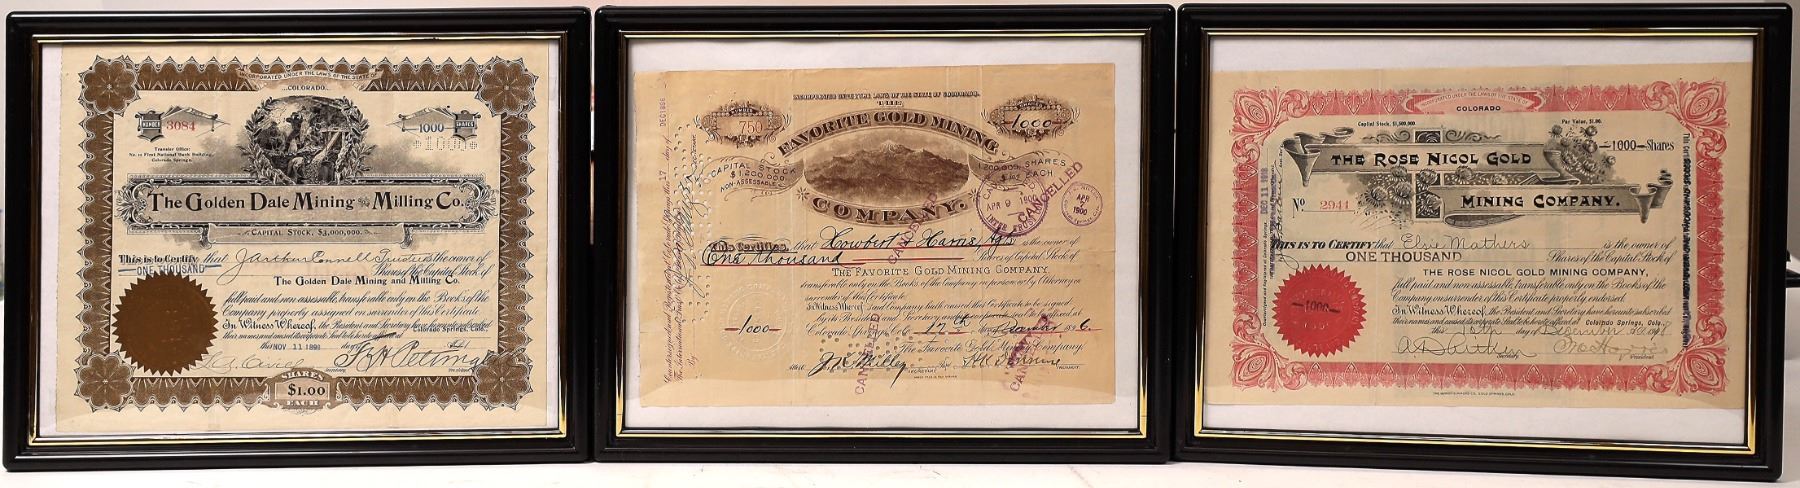 INCORPORATED UNDER THE LAWS OF THE STATE OF
COLORADO.
NUMBER 3084
1000 SHARES
1000
Transfer Office:
No. 10 First National Bank Building,
Colorado Springs.
The Golden Dale Mining and Milling Co.
CAPITAL STOCK, $3,000,000.
This is to Certify that J Arthur Connell Trustee is the owner of
ONE THOUSAND Shares of the Capital Stock of
The Golden Dale Mining and Milling Co.
full paid and non assessable, transferable only on the Books of the
Company properly assigned on surrender of this Certificate.
In Witness Whereof, the President and Secretary have hereunto subscribed
their names and caused the corporate Seal to be hereto affixed at Colorado Springs, Colo.
this NOV 11 1898
Secretary
President
SHARES
$1.00
EACH
INCORPORATED UNDER THE LAWS OF THE STATE OF COLORADO.
THE
750
1000
FAVORITE GOLD MINING
COMPANY.
CAPITAL STOCK
$1,200,000.
NON-ASSESSABLE
1,200,000 SHARES
$1.00 EACH
CANCELLED
APR 9 1900
APR 7 1900
This Certifies that Howbert & Harris Agts is the owner of
One thousand Shares of Capital Stock of
THE FAVORITE GOLD MINING COMPANY,
transferable only on the Books of the Company in person or by Attorney on
surrender of this Certificate.
In Witness Whereof, said Company hath caused this Certificate to be signed
by its President and Secretary and its corporate seal to be affixed at
Colorado Springs, Colo. 17th November 1896.
1000
The Favorite Gold Mining Company,
SECRETARY
CANCELLED
CANCELLED
CANCELLED
INCORPORATED UNDER THE LAWS OF THE STATE OF
COLORADO
Capital Stock, $1,500,000.
Par Value, $1.00.
1000 Shares
THE ROSE NICOL GOLD
MINING COMPANY.
No 2944
DEC 11 1908
THIS IS TO CERTIFY that Elsie Mathers is the owner of
ONE THOUSAND Shares of the Capital Stock of
THE ROSE NICOL GOLD MINING COMPANY,
full paid and non assessable, transferable only on the Books of the
Company on surrender of this Certificate properly endorsed.
In Witness Whereof, the President and Secretary have hereunto subscribed
their names and caused the corporate Seal to be hereto affixed at Colorado Springs, Colo.,
this 10th day of December 1908
1000
A D Aitken
Secretary
President